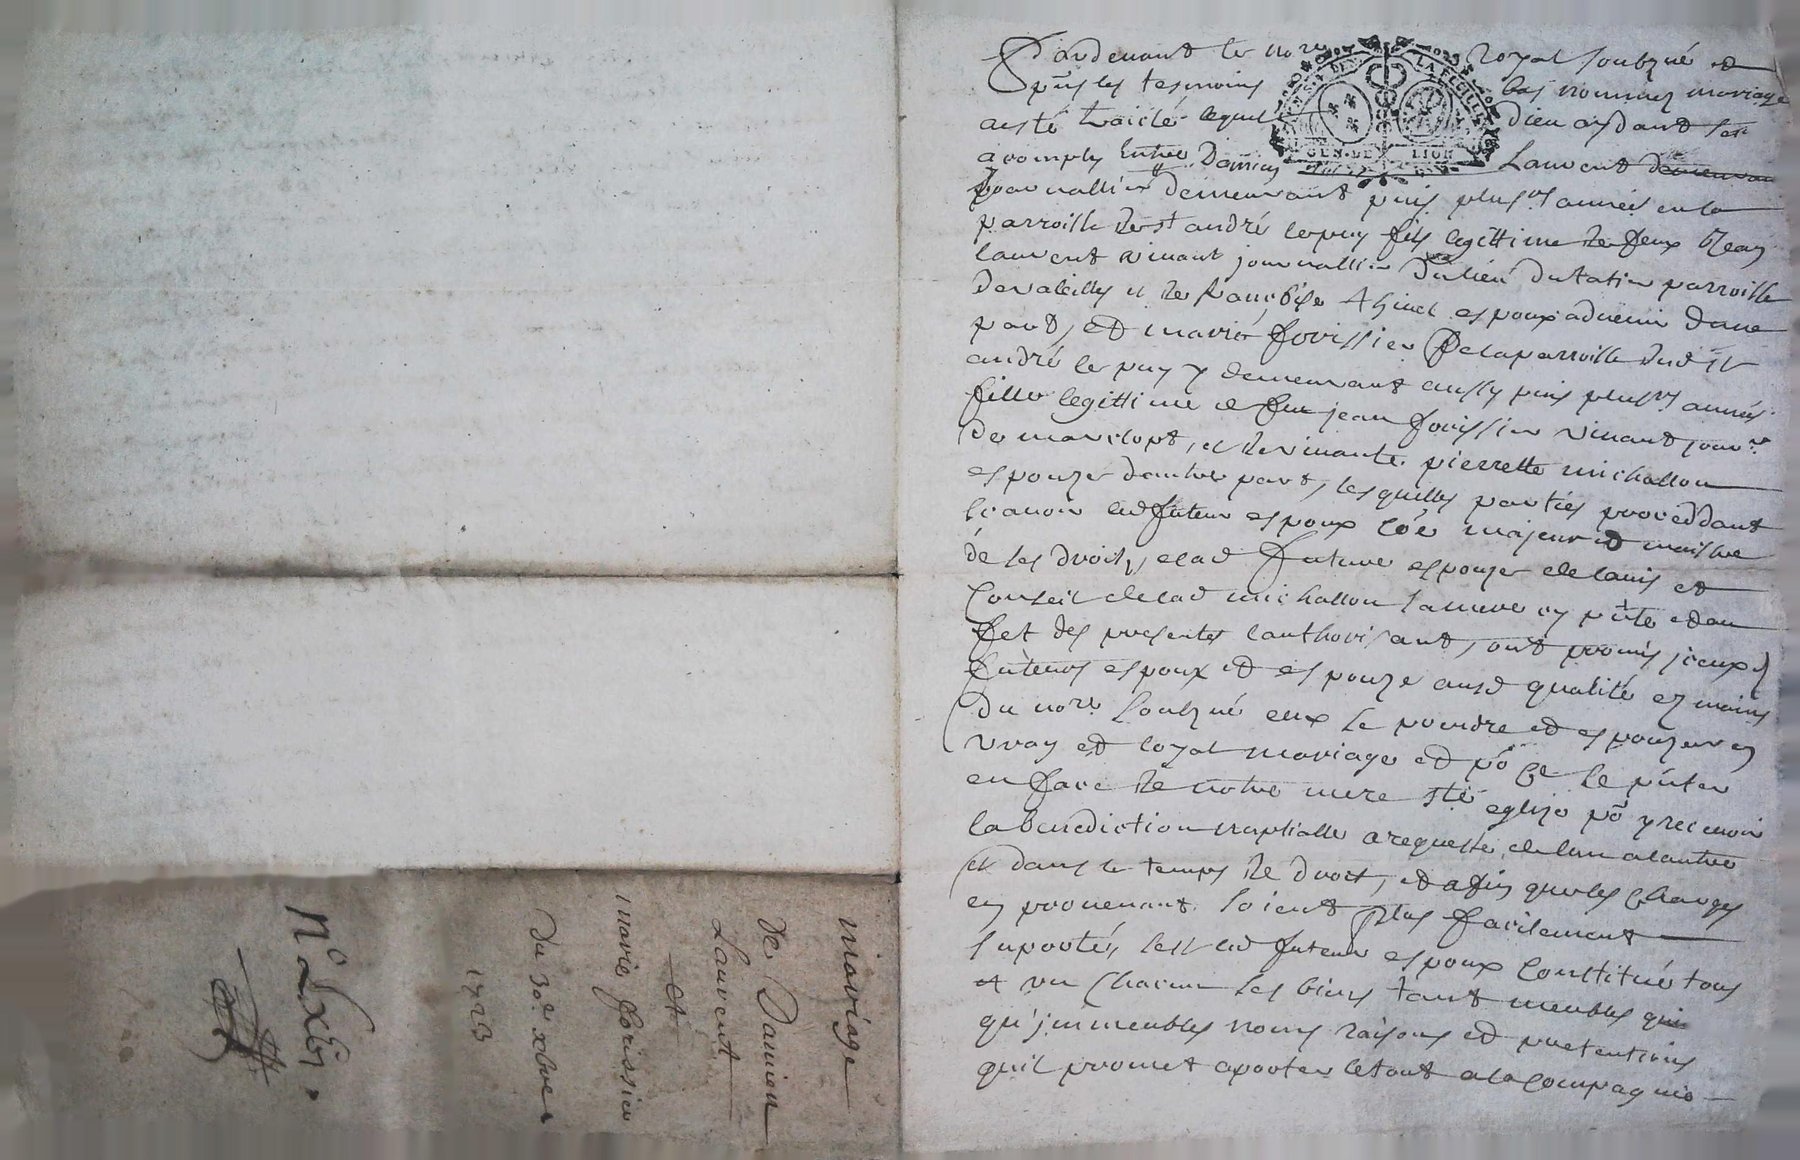 Pardevant le nore royal soubzné et
pnts les tesmoins bas nommez mariage
a esté traicté lequel Dieu aydant sera
acomply Entre Damien Laurent demeuran
journallier demeurant puis plusrs années en la
parroisse de st andré le puy fils legittime de feux Jean
laurent vivant journallier du lieu du tatier parroisse
de valeilly et de françoise espoux advenir dune
part, Et marie forissier de la parroisse dud st
andré le puy y demeurant aussy puis plusrs années
fille legittime de feu jean forissier vivant jour.er
de marclopt, et de vivante pierrette michallon
espouze dautre part, lesquelles parties proceddant
scavoir led futeur espoux coe majeur et maistre
de ses droits, et lad future espouze de lavis et
Conseil de lad michallon sa mere cy pnte et au
fet des presentes lauthorisant, ont promis jceux
futeurs espoux et espouze ausd qualité ez mains
du nore soubzné eux se prendre et espouzer en
vray et loyal mariage et po ce se pnter
en face de notre mere ste eglize po y recevoir
la benediction nuptialle a requeste de lun a lautre
et dans le temps de droit, et afin que les charges
en provenant soient plus facilement
suportés, sest led futeur espoux Constitué tous
et un chacun ses biens tant meubles que
qu'jmmeubles noms raisons et pretentions
quil promet aporter le tout a la Compagnie
mariage
de Damien
Laurent
et
marie forissier
du 30e xbre
1723
no Lxbj.
LA FEUILLE
GEN. DE LION